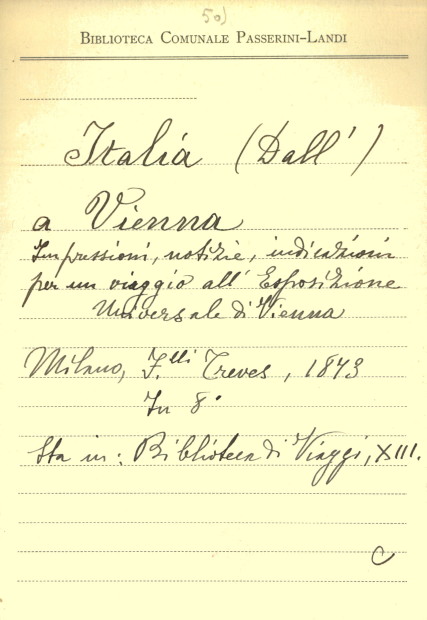 50)
BIBLIOTECA COMUNALE PASSERINI-LANDI
Italia (Dall')
a Vienna
Impressioni, notizie, indicazioni
per un viaggio all' Esposizione
Universale di Vienna
Milano, F.lli Treves, 1873
In 8°
Sta in: Biblioteca di Viaggi, XIII.
C